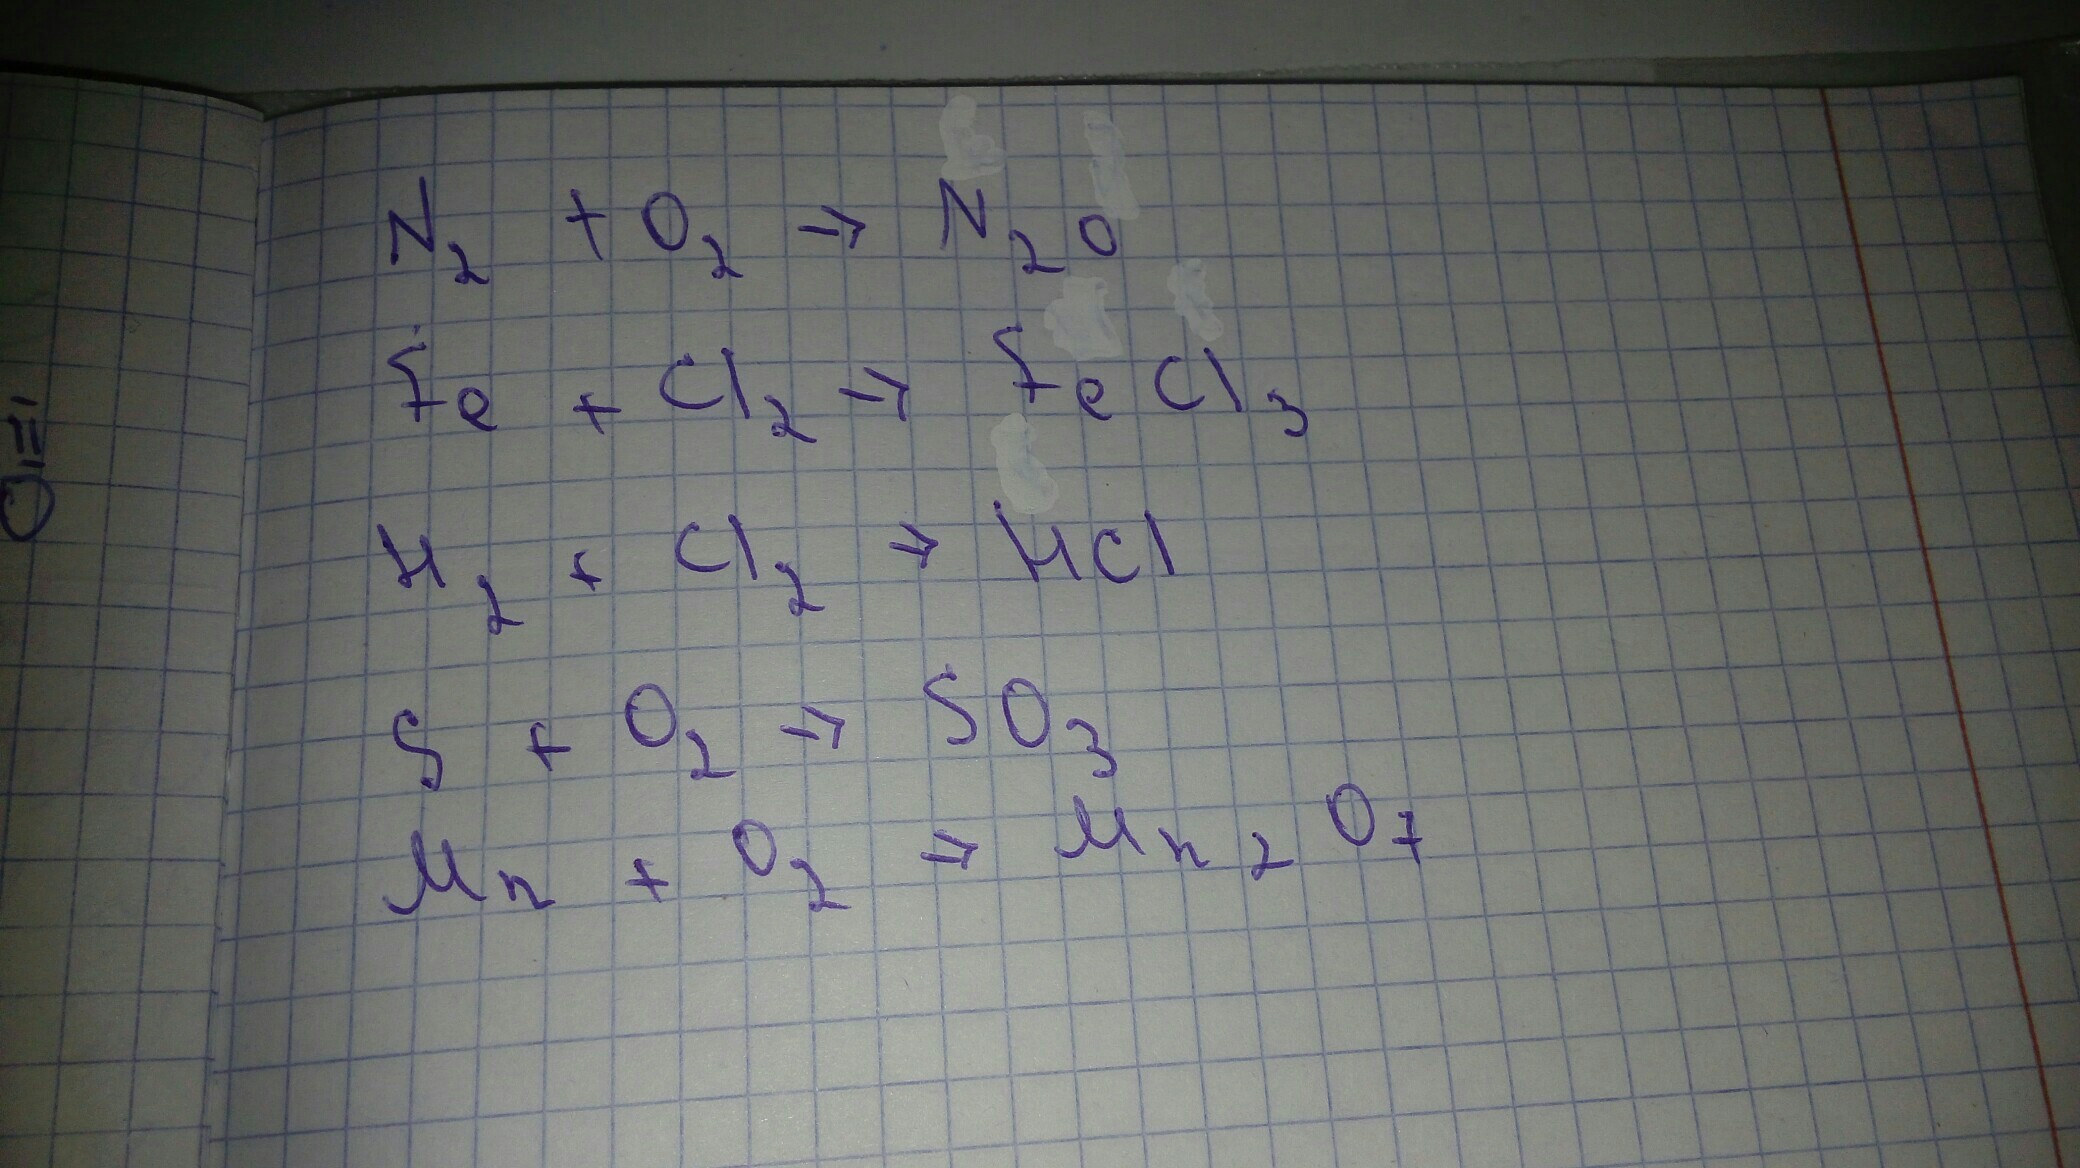 N₂ + O₂ → N₂O
Fe + Cl₂ → FeCl₃
H₂ + Cl₂ → HCl
S + O₂ → SO₃
Mn + O₂ → Mn₂O₇